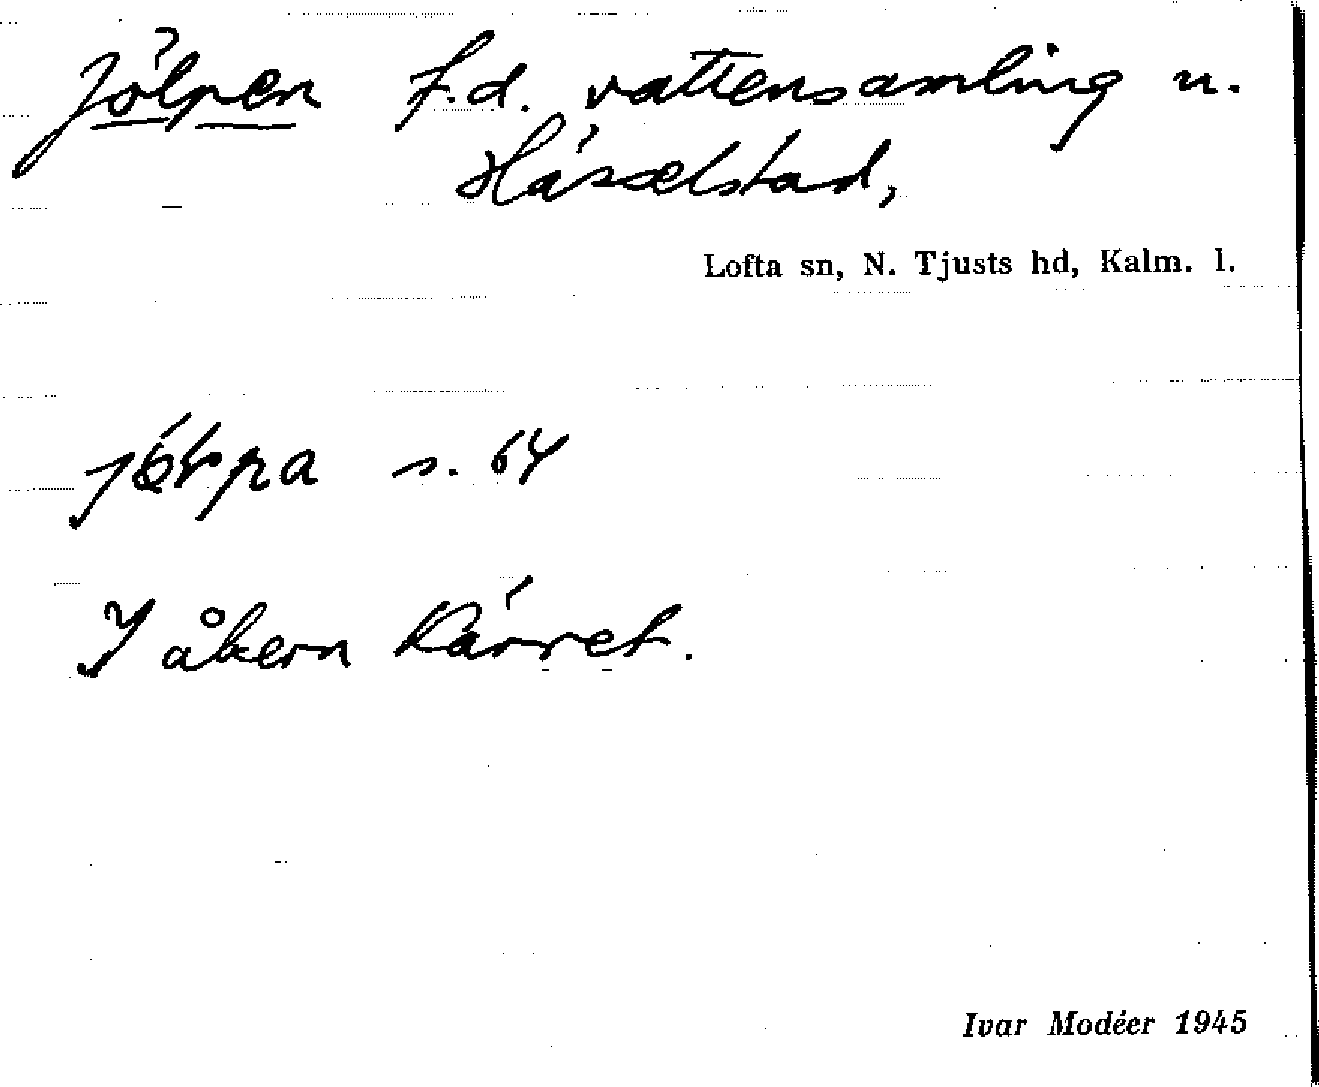 Jölpen f.d. vattensamling u.
Hässelstad,
Lofta sn, N. Tjusts hd, Kalm. l.
s. 64
I åkern Kärret.
Ivar Modéer 1945